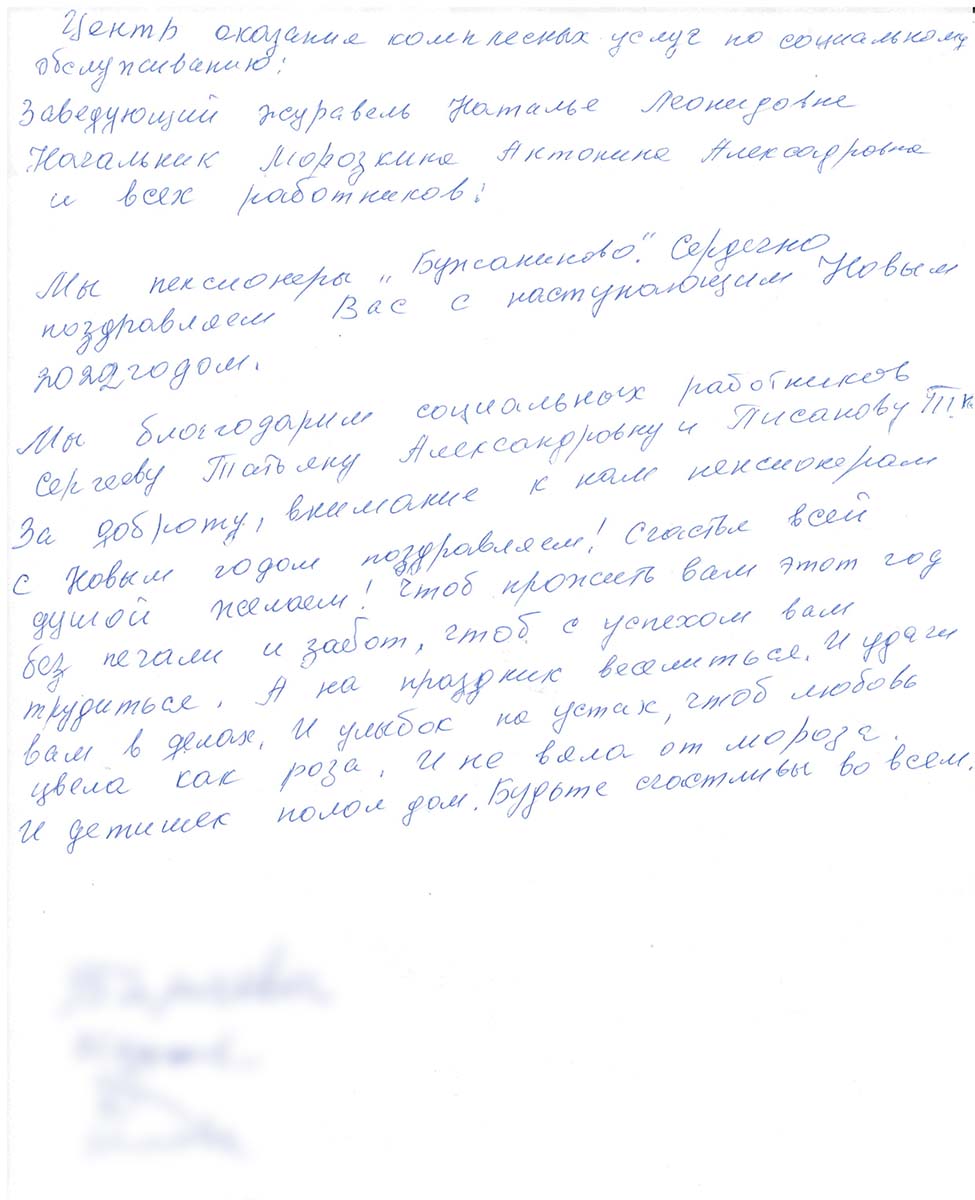 Центр оказание комплесных услуг по социальному
обслуживанию:
Заведующий Журавель Наталье Леонидовне
Начальник Морозкина Антонина Алексадровна
и всех работников:
Мы пенсионеры „Бужаниново". Сердечно
поздравляем Вас с наступающим Новым
2022 годом.
Мы благодарим социальных работников
Сергееву Татьяну Александровну и Писанову
За доброту, внимание к нам пенсионерам
С Новым годом поздравляем! Счастье всей
душой желаем! Чтоб прожить вам этот год
без печали и забот, чтоб с успехом вам
трудиться. А на праздник веселиться. И удачи
вам в делах. И улыбок на устах, чтоб любовь
цвела как роза. И не вяла от мороза.
И детишек полон дом. Будьте счастливы во всем.